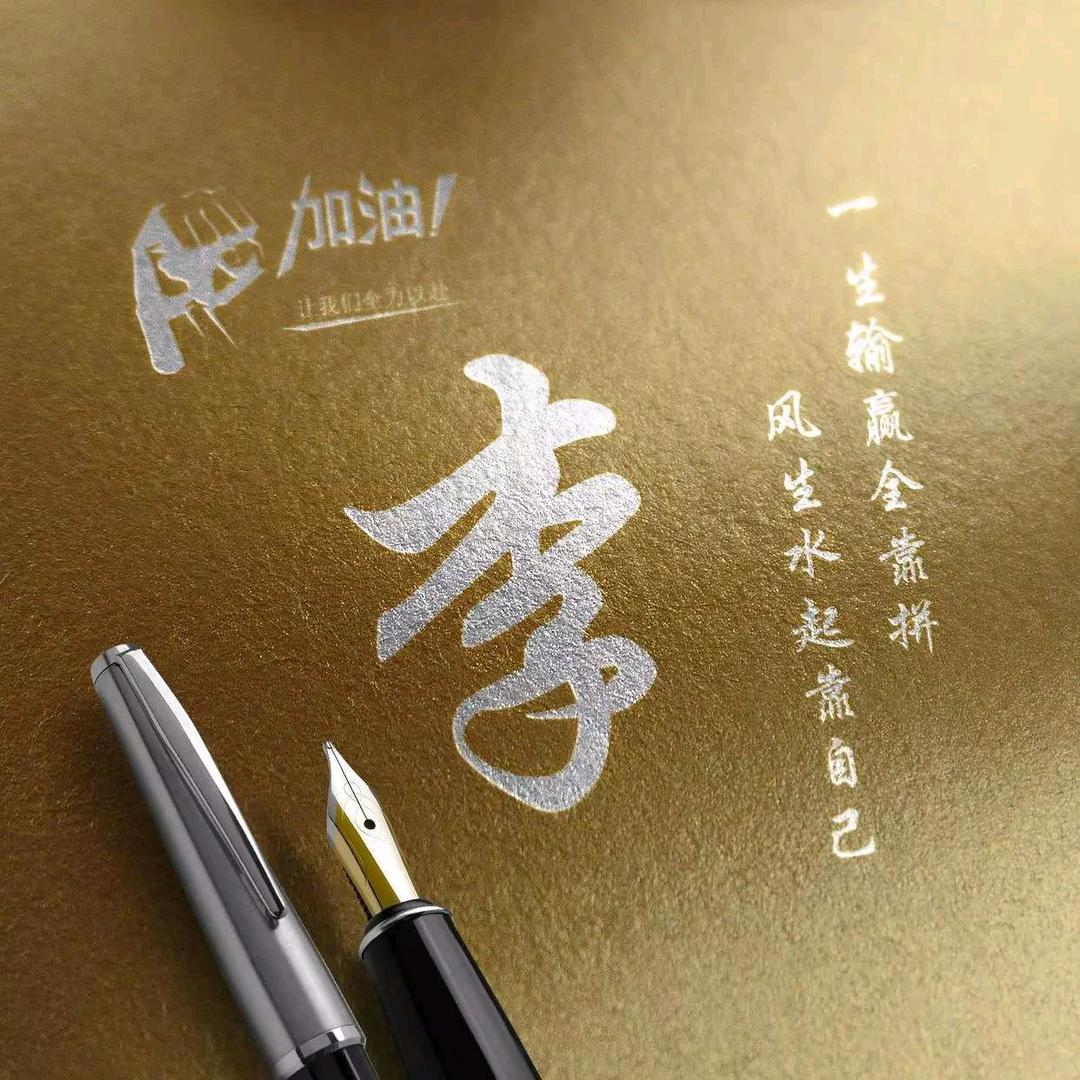 加油!
让我们全力以赴
李
一生输赢全靠拼
风生水起靠自己